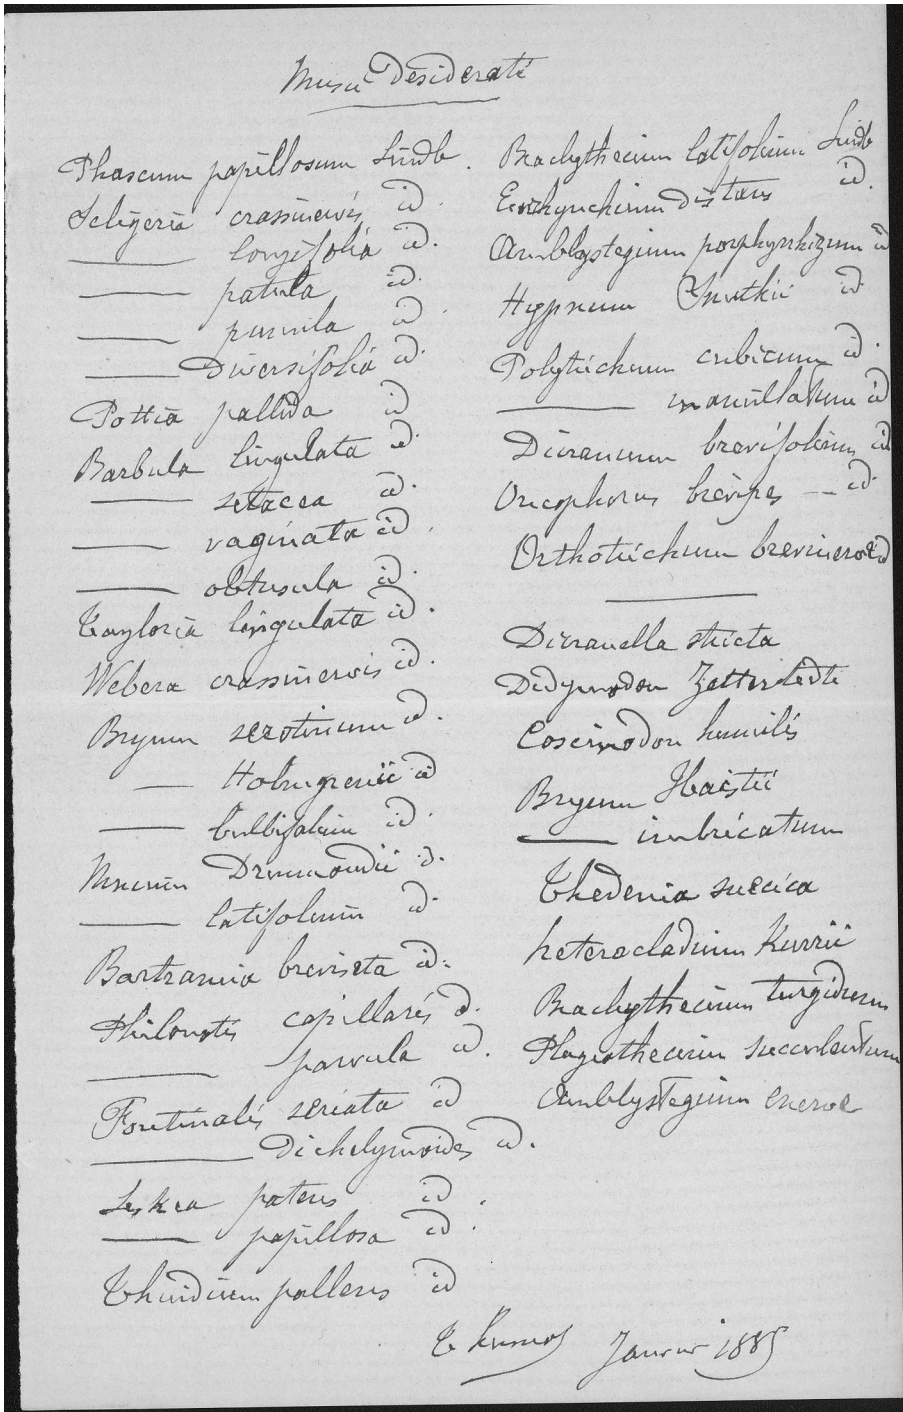 Musci Desiderati
Phascum papillosum Lindb.
Seligeria crassinervis id.
——— longifolia id.
——— patula id.
——— pumila id
——— Diversifolia id.
Pottia pallida id
Barbula lingulata id.
——— setacea id.
——— vaginata id.
——— obtusula id.
Tayloria lingulata id.
Webera crassinervis id.
Bryum serotinum id.
— Holmgrenii id
——— bulbifolium id.
Mnium Drummondii id.
——— latifolium id.
Bartramia breviseta id.
Philonotis capillaris id.
——— parvula id.
Fontinalis seriata id
——— Dichelymoides id.
Leskea patens id.
——— papillosa id.
Thuidium pallens id
Brachythecium latifolium Lindb
Eurhynchium distans id.
Amblystegium porphyrrhizum id
Hypnum id.
Polytrichum cubicum id.
——— mamillatum id
Dicranum brevifolium id
Oncophorus brevipes — id.
Orthotrichum brevinerve id
———
Dicranella stricta
Didymodon Zetterstedti
Coscinodon humilis
Bryum
——— imbricatum
Thedenia suecica
heterocladium Kurrii
Brachythecium turgidum
Plagiothecium succulentum
Amblystegium enerve
Janvier 1885